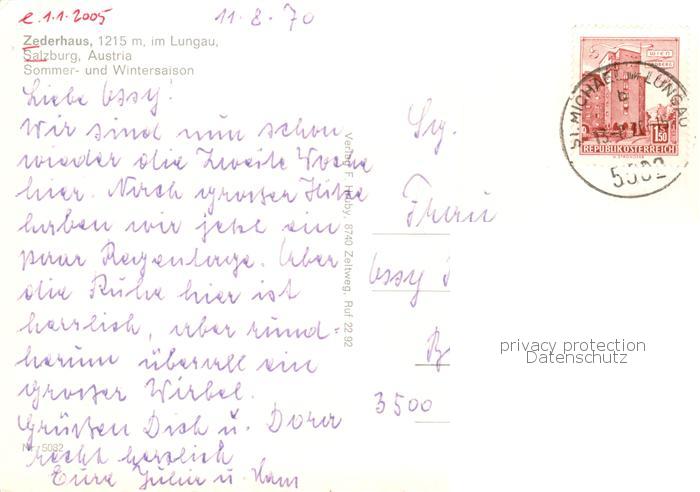 e. 1.1.2005
11.8.70
Zederhaus, 1215 m, im Lungau,
Salzburg, Austria
Sommer- und Wintersaison
Liebe Ossy!
Wir sind nun schon
wieder die zweite Woche
hier. Nach großer Hitze
haben wir jetzt ein
paar Regentage. Aber
die Ruhe hier ist
herrlich, aber rund-
herum überall ein
großer Wirbel.
Grüßen Dich u. Dora
recht herzlich
Eure Julia u. Hans
Nr. 5082
Verlag F. 8740 Zeltweg, Ruf 22 92
Frau
Ossy
3500
WIEN
1.50
REPUBLIK ÖSTERREICH
ST. MICHAEL IM LUNGAU
b
5582
privacy protection
Datenschutz